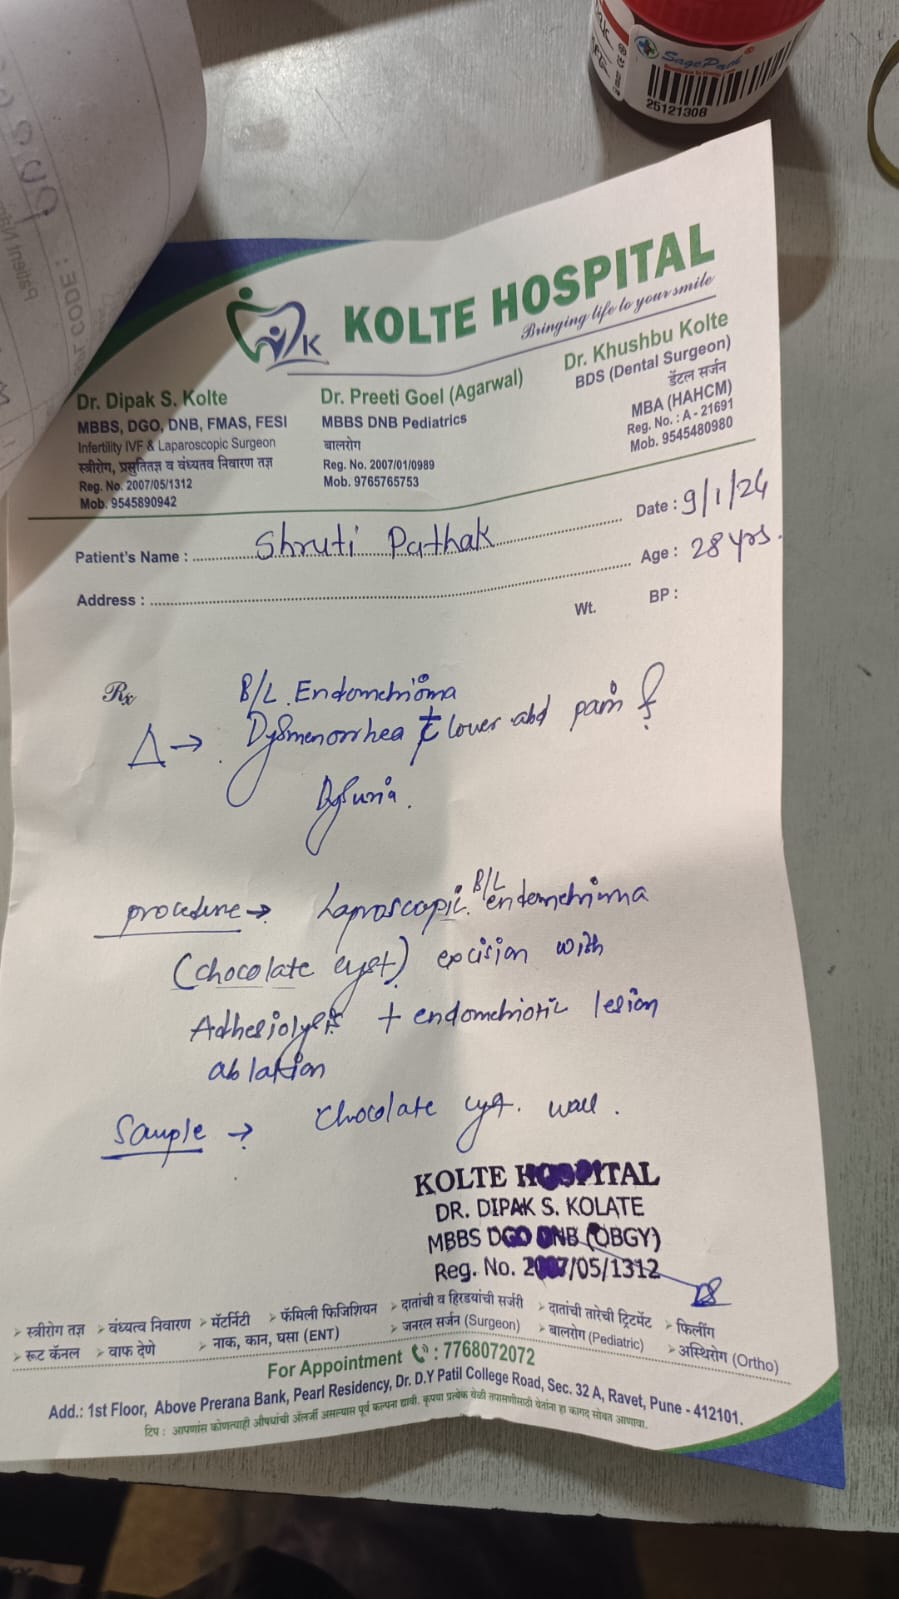 SagePath
25121308
CODE :
Patient Nam
KOLTE HOSPITAL
Bringing life to your smile
K
Dr. Dipak S. Kolte
MBBS, DGO, DNB, FMAS, FESI
Infertility IVF & Laparoscopic Surgeon
स्त्रीरोग, प्रसुतितज्ञ व वंध्यतव निवारण तज्ञ
Reg. No. 2007/05/1312
Mob. 9545890942
Dr. Preeti Goel (Agarwal)
MBBS DNB Pediatrics
बालरोग
Reg. No. 2007/01/0989
Mob. 9765765753
Dr. Khushbu Kolte
BDS (Dental Surgeon)
डेंटल सर्जन
MBA (HAHCM)
Reg. No. : A - 21691
Mob. 9545480980
Date : 9/1/26
Patient's Name : Shruti Pathak
Age : 28 yrs.
Address :
Wt. BP :
Rx
B/L Endometrioma
Δ → Dysmenorrhea c̄ lower abd pain &
Dysuria.
procedure → Laproscopic B/L endometrioma
(chocolate cyst) excision with
Adhesiolysis + endometriotic lesion
ablation
Sample → Chocolate cyst. wall.
KOLTE HOSPITAL
DR. DIPAK S. KOLATE
MBBS DGO DNB (OBGY)
Reg. No. 2007/05/1312
➢ स्त्रीरोग तज्ञ ➢ वंध्यत्व निवारण ➢ मॅटर्निटी ➢ फॅमिली फिजिशियन ➢ दातांची व हिरडयांची सर्जरी ➢ दातांची तारेची ट्रिटमेंट ➢ फिलींग
➢ रूट कॅनल ➢ वाफ देणे ➢ नाक, कान, घसा (ENT) ➢ जनरल सर्जन (Surgeon) ➢ बालरोग (Pediatric) ➢ अस्थिरोग (Ortho)
For Appointment : 7768072072
Add.: 1st Floor, Above Prerana Bank, Pearl Residency, Dr. D.Y Patil College Road, Sec. 32 A, Ravet, Pune - 412101.
टिप : आपणांस कोणत्याही औषधांची ॲलर्जी असल्यास पूर्व कल्पना द्यावी. कृपया प्रत्येक वेळी तपासणीसाठी येतांना हा कागद सोबत आणावा.